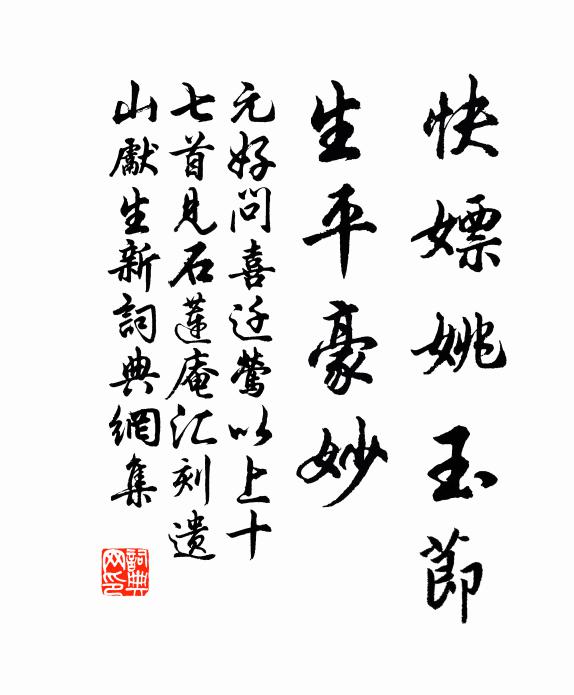 快嫖姚玉節
生平豪妙
元好問喜迁鶯以上十
七首見石蓮庵汇刻遗
山獻生新詞典網集
詞典网印